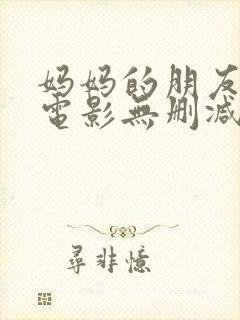 妈妈的朋友
電影無删减
尋非憶